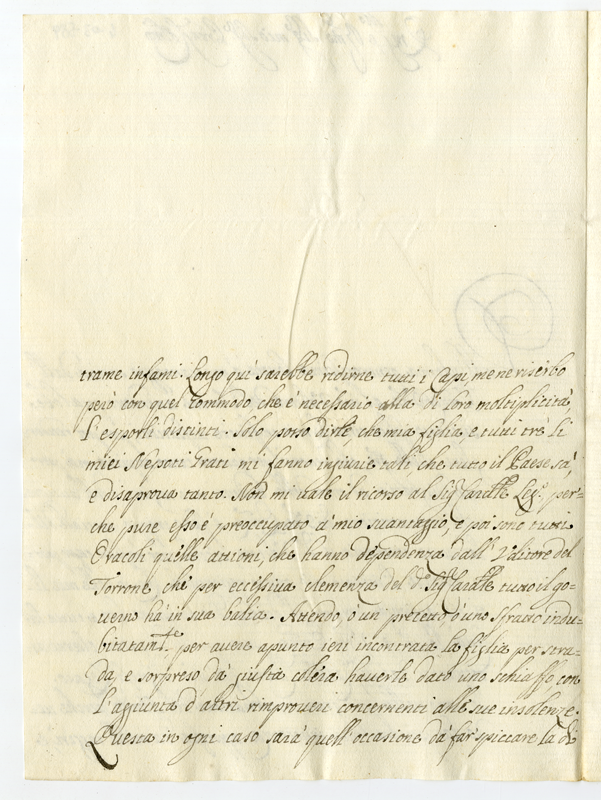 trame infami. Longo quì sarebbe ridirne tutti i Capi, me ne riserbo
però con quel commodo, che è necessario alla di loro moltiplicità,
l'esporli distinti. Solo posso dirle che mia figlia, e tutti trè li
miei Nepoti Frati mi fanno ingiurie tali che tutto il Paese sà,
e disaprova tanto. Non mi vale il ricorso al Sig.r Card.le Leg.o, per=
che pure esso è preoccupato à mio svantaggio, e poi sono tutti
Oracoli quelle attioni, che hanno dependenza dall'Uditore del
Torrone, che per eccessiva clemenza del d.o Sig.r Card.le tutto il go=
verno hà in sua balia. Attendo, ò un precetto, ò uno sfratto indu=
bitatam.te per avere apunto ieri incontrata la figlia per stra=
da, e sorpreso dà giusta colera haverle dato uno schiaffo con
l'aggiunta d'altri rimproveri concernenti alle sue insolenze.
Questa in ogni caso sarà quell'occasione dà far spiccare la di